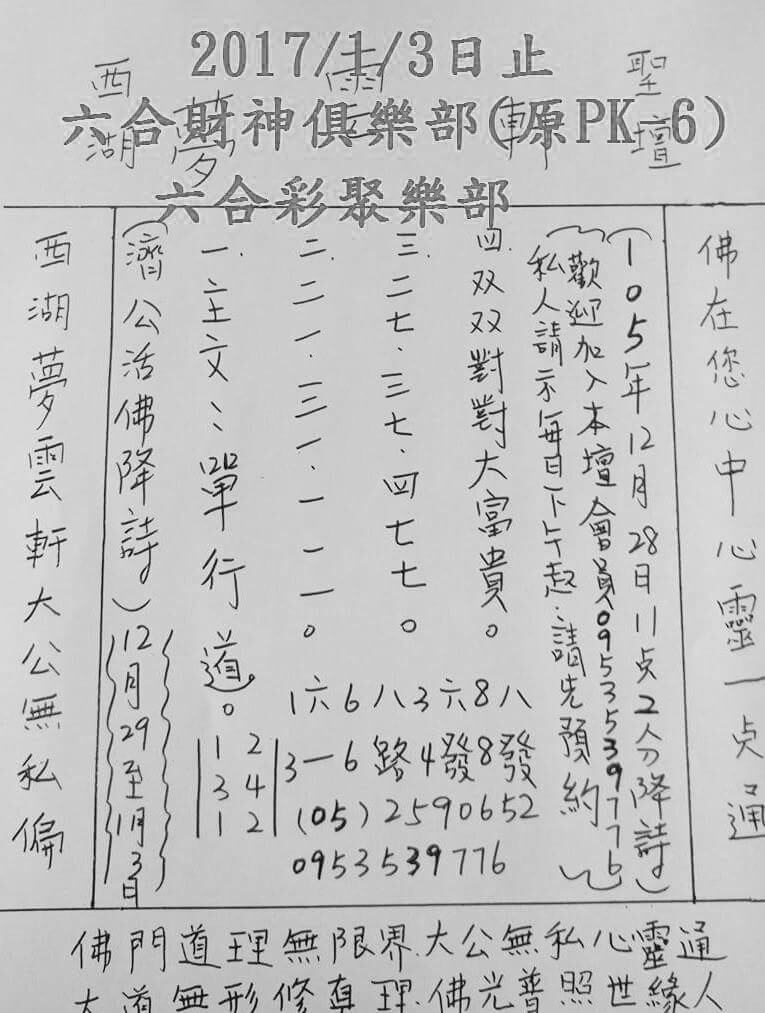 2017/1/3日止
六合財神俱樂部(原PK-6)
六合彩聚樂部
西湖夢雲軒聖壇
西湖夢雲軒大公無私偏
(濟公活佛降詩)12月29至1月3日
一.主文:單行道。
二.二一.三一.一二一。
三.二七.三七.四七七。
四.双双對對大富貴。
私人請示每日下午起:請先預約
歡迎加入本壇會員0953539776
(105年12月28日11点2分降詩)
佛在您心中心靈一点通
1 2
3 4
1 2
1六6八3六8八
3一6路4發8發
(05)2590652
0953539776
佛門道理無限界.大公無私心靈通
大道無形修真理.佛光普照世緣人